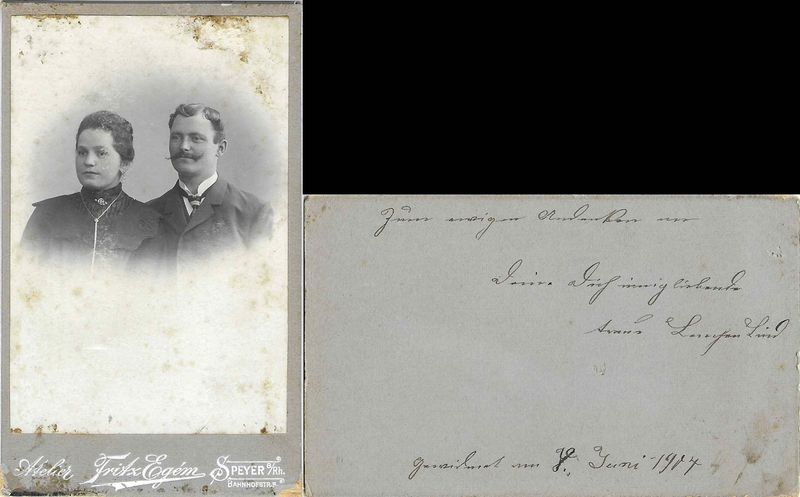 Atelier Fritz Egém SPEYER a/Rh.
BAHNHOFSTR.
Zum ewigen Andenken an
Deine Dich innig liebende
treue Lenchen Lind
Gewidmet am 8. Juni 1904